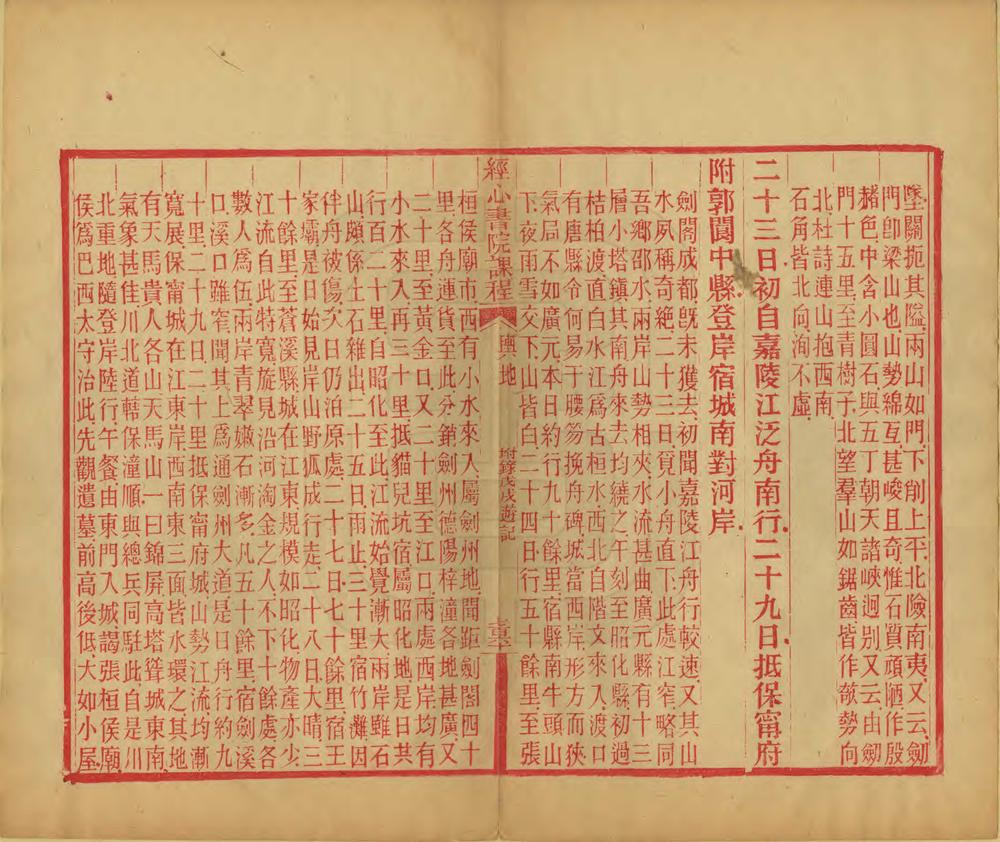 墜關扼其隘兩山如門下削上平北險南夷又云劒
門卽梁山也山勢綿亙甚峻且奇惟石質頑陋作殷
赭色中含小圓石與五丁朝天諸峽迥別又云由劒
門十五里至青樹子北望羣山如鋸齒皆作欹勢向
北杜詩連山抱西南
石角皆北向洵不虛
二十三日初自嘉陵江泛舟南行二十九日抵保甯府
附郭閬中縣登岸宿城南對河岸
劍閣成都旣未獲去初聞嘉陵江舟行較速又其山
水夙稱奇絕二十三日覓小舟直下此處江窄略同
吾鄉邵水兩岸山勢相夾水流甚曲廣元縣有十三
層小塔鎭其南舟來去均繞之午刻至昭化縣初過
桔柏渡直白水江爲古桓水西北自階文來入渡口
有唐縣令何易于腰笏挽舟碑城當西岸形方而狹
氣局不如廣元本日約行九十餘里宿縣南牛頭山
下夜雨雪交下山皆白二十四日行五十餘里至張
經心書院課程
輿地
附錄戊戌遊記
桓侯廟市西有小水來入屬劍州地聞距劍閣四十
里各舟運貨至此分銷劍州德陽梓潼各地甚廣又
二十里至黃金口又二十里至江口兩處西岸均有
小水來入再三十里抵貓兒坑宿屬昭化地是日共
行百二十里自昭化至此江流始覺漸大兩岸雖石
山頗係土石雜出二十五日雨止三十里宿竹灘因
伴舟被傷次日仍泊原處二十七日七十餘里宿王
家壩是日始見岸山野狐成行走二十八日大晴三
十餘里至蒼溪縣城在江東規模如昭化物產亦少
江流自此特寬旋見沿河淘金之人不下十餘處各
數人爲伍兩岸青翠嫩石漸多凡五十餘里宿劍溪
口溪口雖窄聞其上爲通劍州大道是日舟行約九
十里二十九日二十里抵保甯府城山勢江流均漸
寬展保甯城在江東岸西南東三面皆水環之其地
有天馬貴人各山天馬山一曰錦屏高塔聳城東南
氣象甚佳川北道轄保潼順與總兵同駐此自是川
北重地隨登岸陸行午餐由東門入城謁張桓侯廟
侯爲巴西太守治此先觀遺墓前高後低大如小屋